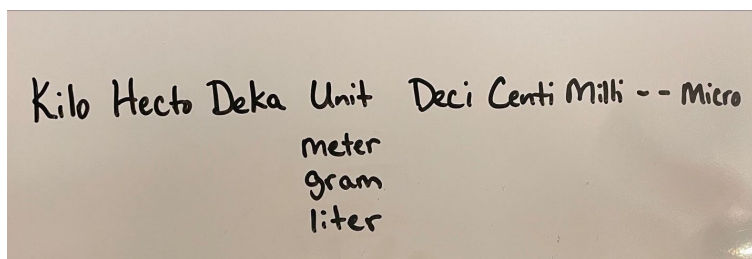 Kilo Hecto Deka Unit Deci Centi Milli - - Micro
meter
gram
liter